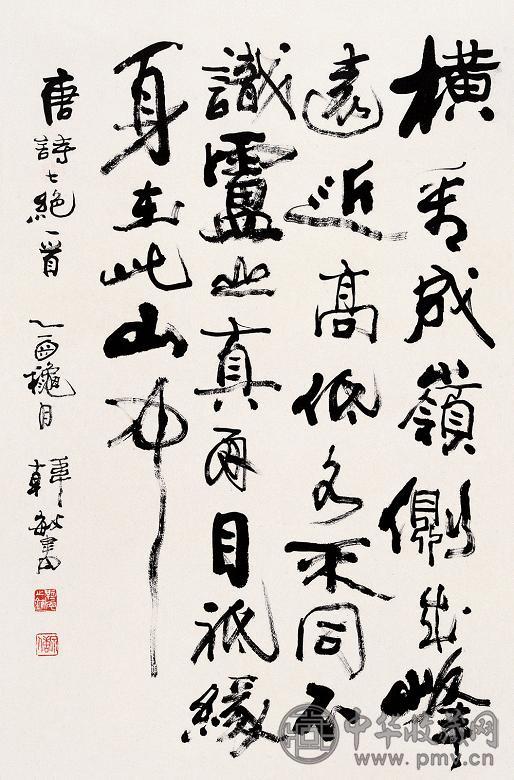 橫看成嶺側成峰
遠近高低各不同不
識盧山真面目祇緣
身在此山中
唐詩七絕一首 乙酉穐月 韓敏書
中华收藏网
www.pmy.cn